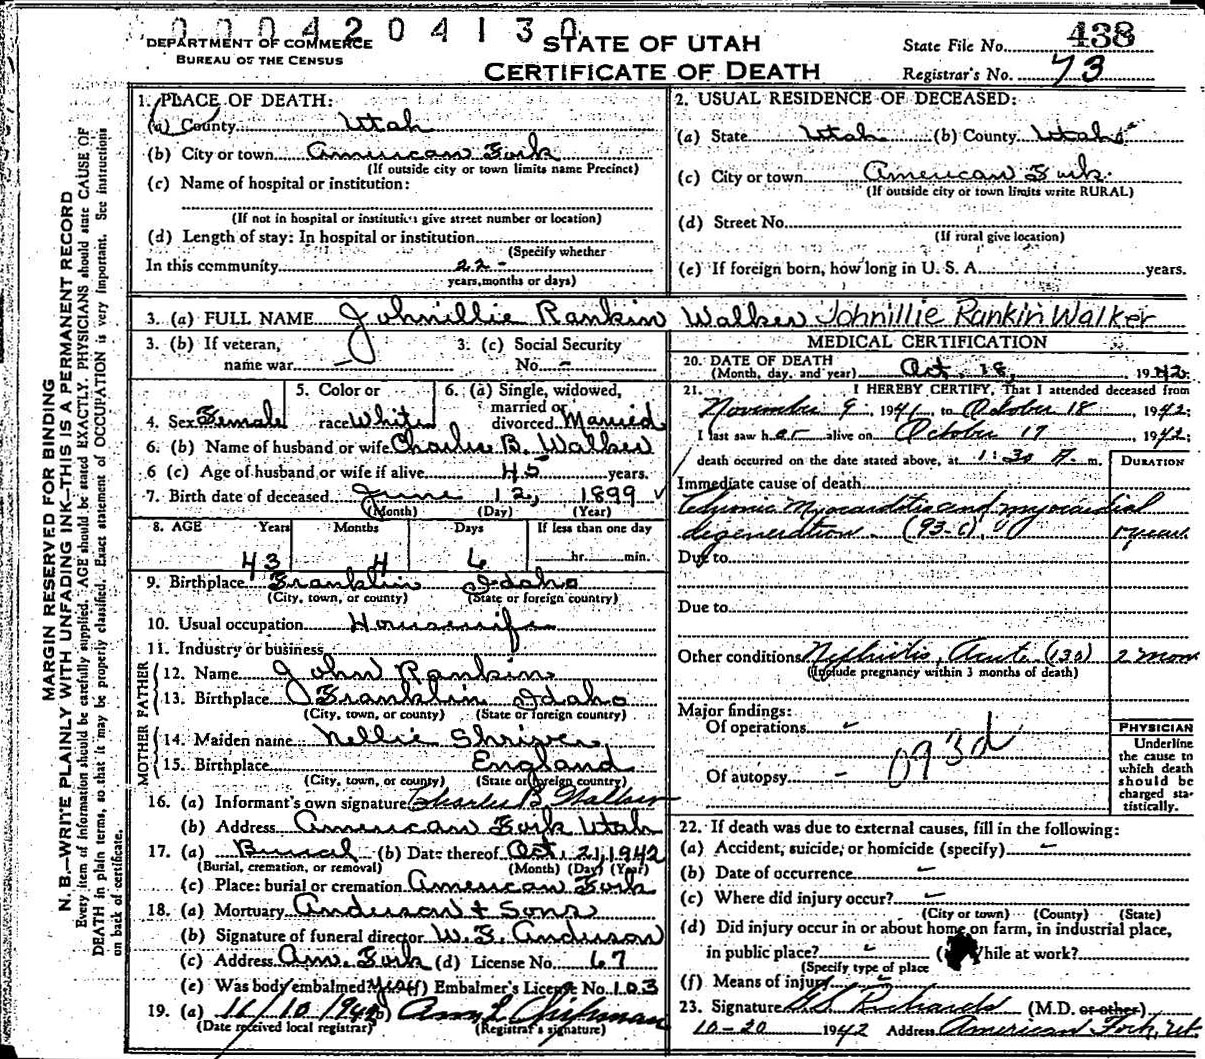 0 0 0 4 2 0 4 1 3 0
DEPARTMENT OF COMMERCE
BUREAU OF THE CENSUS
STATE OF UTAH
CERTIFICATE OF DEATH
State File No. 438
Registrar's No. 73
MARGIN RESERVED FOR BINDING
N. B.—WRITE PLAINLY WITH UNFADING INK—THIS IS A PERMANENT RECORD
Every item of information should be carefully supplied. AGE should be stated EXACTLY. PHYSICIANS should state CAUSE OF
DEATH in plain terms, so that it may be properly classified. Exact statement of OCCUPATION is very important. See instructions
on back of certificate.
1. PLACE OF DEATH:
(a) County Utah
(b) City or town American Fork
(If outside city or town limits name Precinct)
(c) Name of hospital or institution:
(If not in hospital or institution give street number or location)
(d) Length of stay: In hospital or institution
(Specify whether
In this community 22 -
years, months or days)
2. USUAL RESIDENCE OF DECEASED:
(a) State Utah (b) County Utah
(c) City or town American Fork
(If outside city or town limits write RURAL)
(d) Street No.
(If rural give location)
(e) If foreign born, how long in U. S. A. years.
3. (a) FULL NAME Johnillie Rankin Walker Johnillie Rankin Walker
3. (b) If veteran,
name war —
3. (c) Social Security
No. -
4. Sex Female
5. Color or
race White
6. (a) Single, widowed,
married or
divorced Married
6. (b) Name of husband or wife Charlie B. Walker
6 (c) Age of husband or wife if alive 45 years.
7. Birth date of deceased June 12, 1899
(Month) (Day) (Year)
8. AGE Years Months Days If less than one day
43 4 6 hr. min.
9. Birthplace Franklin Idaho
(City, town, or county) (State or foreign country)
10. Usual occupation Housewife
11. Industry or business
FATHER
12. Name John Rankin
13. Birthplace Franklin Idaho
(City, town, or county) (State or foreign country)
MOTHER
14. Maiden name Nellie Shriver
15. Birthplace England
(City, town, or county) (State or foreign country)
16. (a) Informant's own signature Charles B. Walker
(b) Address American Fork Utah
17. (a) Burial (b) Date thereof Oct. 21, 1942
(Burial, cremation, or removal) (Month) (Day) (Year)
(c) Place: burial or cremation American Fork
18. (a) Mortuary Anderson & Sons
(b) Signature of funeral director W. E. Anderson
(c) Address Am. Fork (d) License No. 67
(e) Was body embalmed? Yes Embalmer's License No. 103
19. (a) 11/10/942 (b) Chipman
(Date received local registrar) (Registrar's signature)
MEDICAL CERTIFICATION
20. DATE OF DEATH
(Month, day, and year) Oct. 18, 1942
21. I HEREBY CERTIFY, That I attended deceased from
November 9, 1941, to October 18, 1942;
I last saw her alive on October 17, 1942;
death occurred on the date stated above, at 1:30 A. m.
DURATION
Immediate cause of death
Chronic Myocarditis and myocardial
degeneration. (93-c) 1 year
Due to
Due to
Other conditions Nephritis, Acute (130) 2 mon
(Include pregnancy within 3 months of death)
Major findings:
Of operations -
Of autopsy -
093d
PHYSICIAN
Underline
the cause to
which death
should be
charged sta-
tistically.
22. If death was due to external causes, fill in the following:
(a) Accident, suicide, or homicide (specify) -
(b) Date of occurrence -
(c) Where did injury occur? -
(City or town) (County) (State)
(d) Did injury occur in or about home, on farm, in industrial place,
in public place? - While at work?
(Specify type of place
(f) Means of injury -
23. Signature Richards (M.D. or other)
10-20 1942 Address American Fork, Ut.